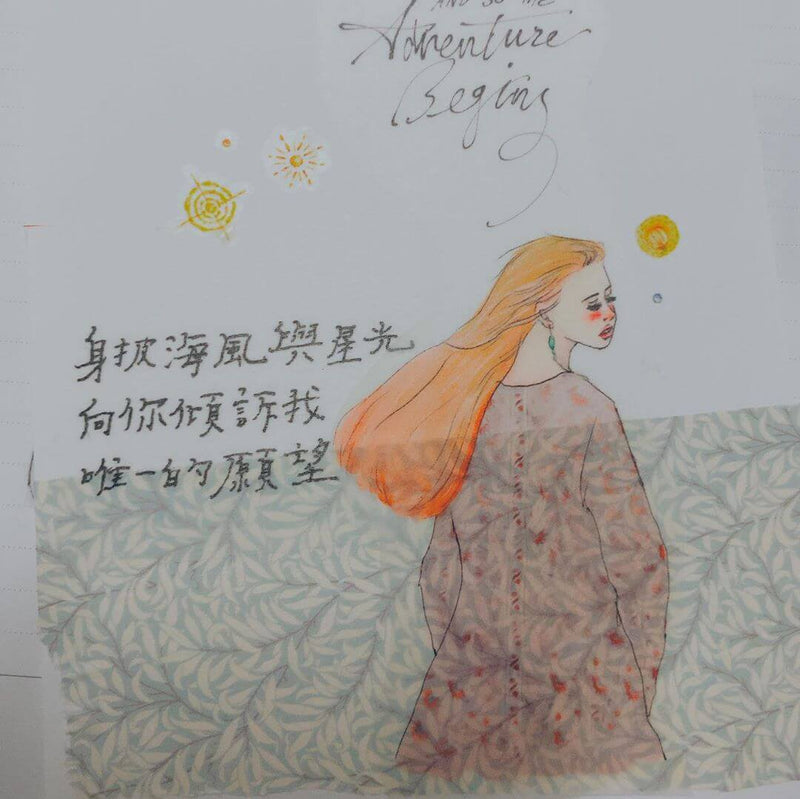 AND SO THE
Adventure
Begins
身披海風與星光
向你傾訴我
唯一的願望